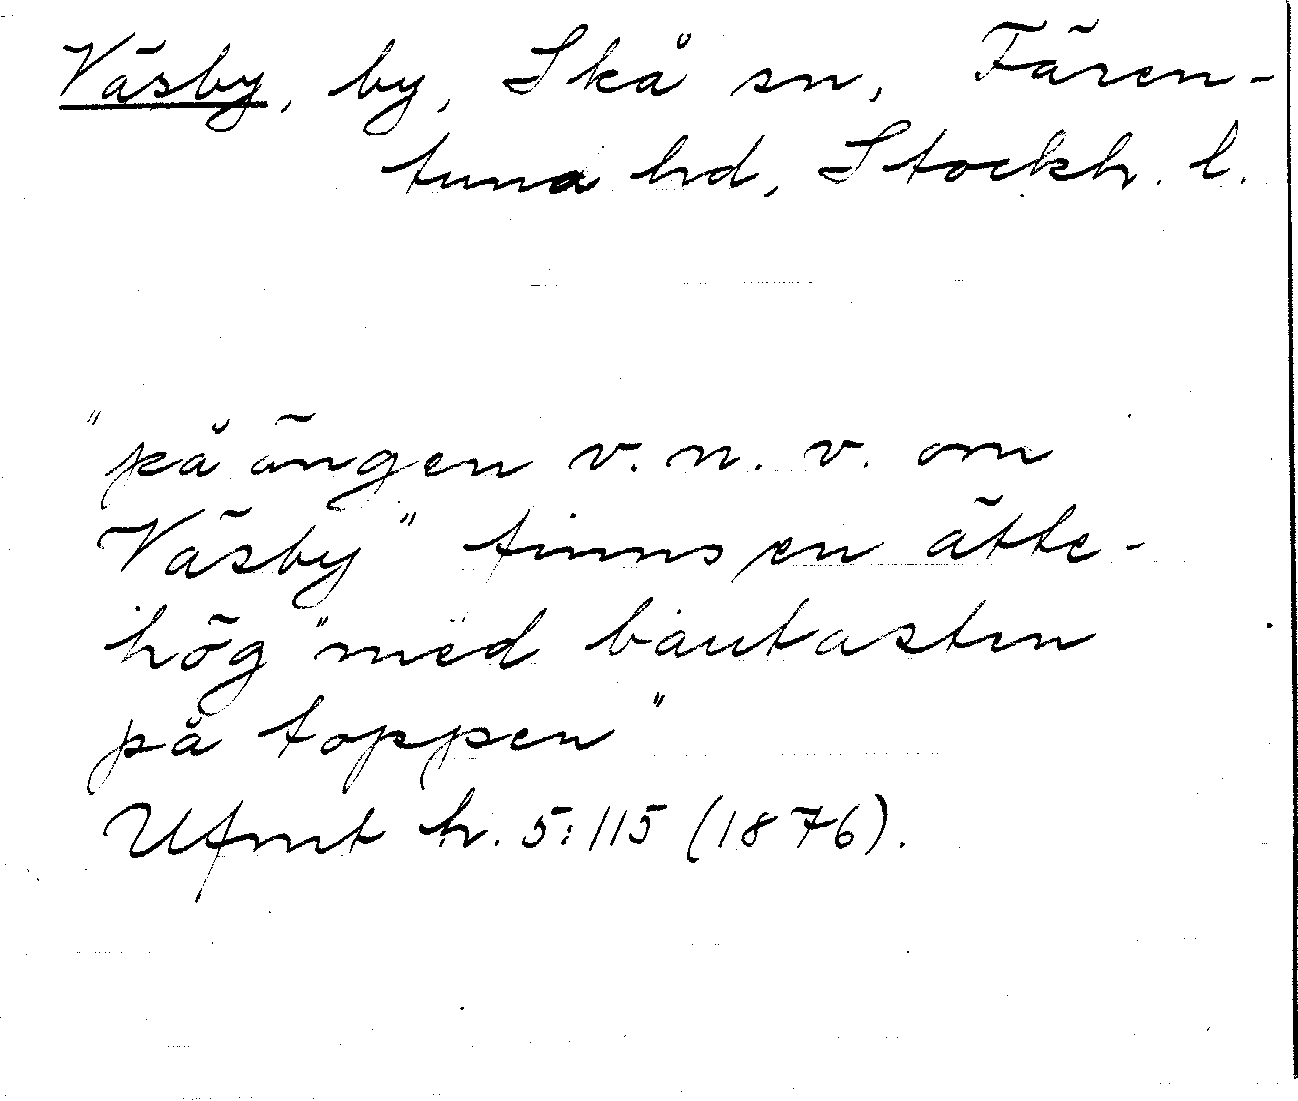 Väsby, by, Skå sn, Fären-
tuna hd, Stockh. l.
"på ängen v. n. v. om
Väsby" finns en ätte-
hög "med bautasten
på toppen"
Ufmt h. 5:115 (1876).